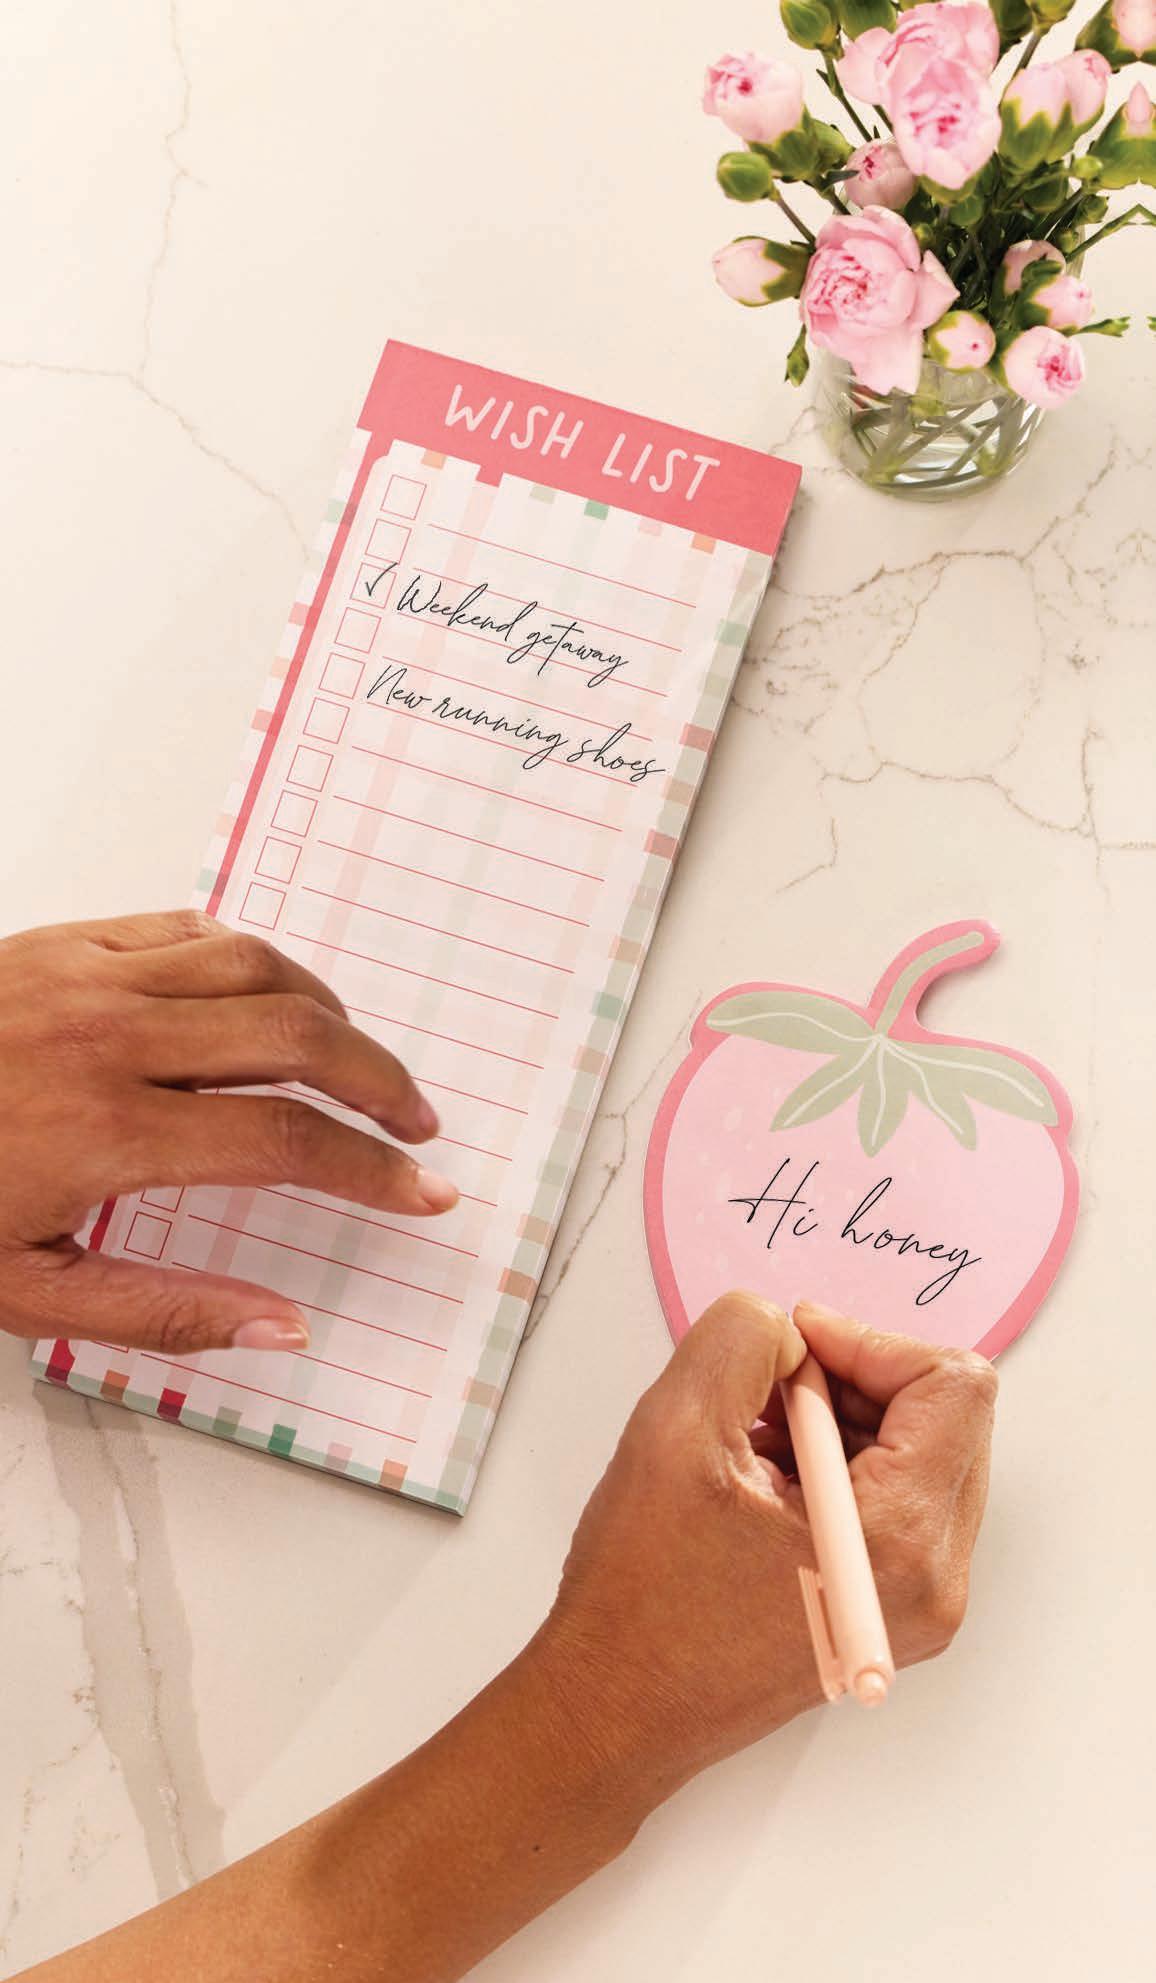 WISH LIST
✓ Weekend getaway
New running shoes
Hi honey